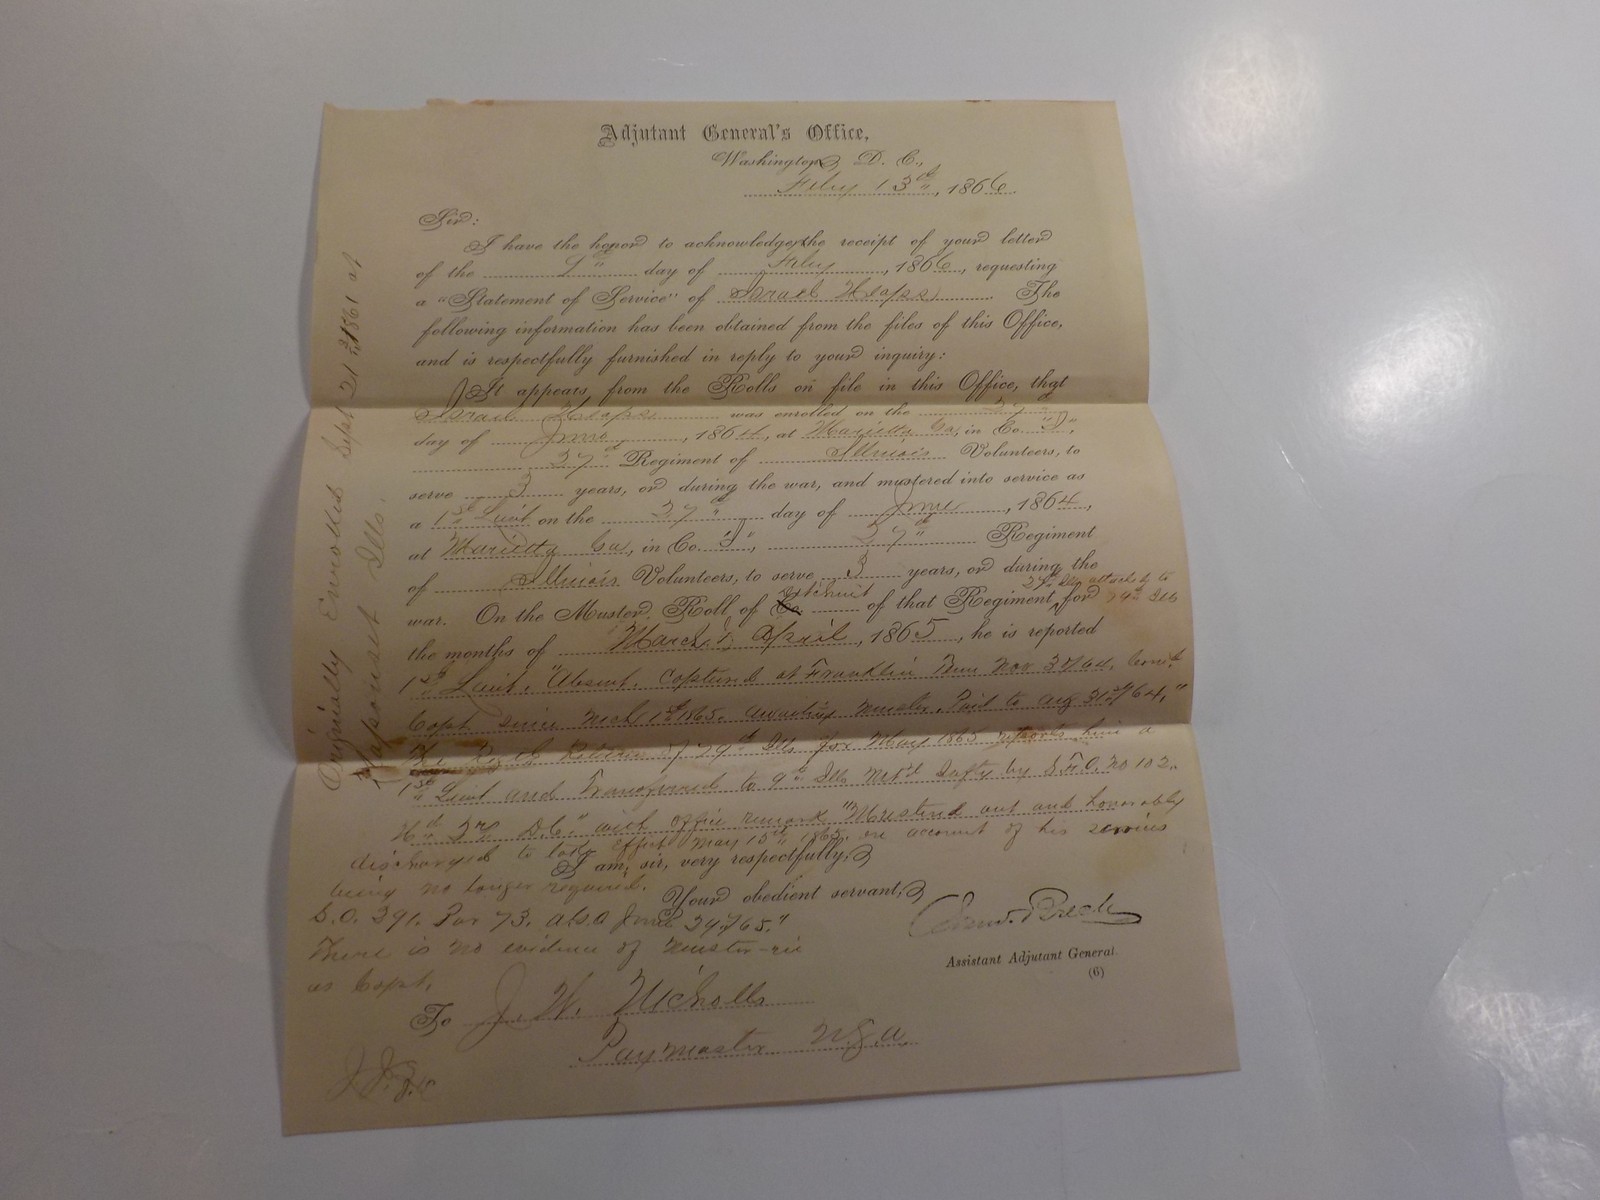 Adjutant General's Office,
Washington, D. C.,
Feby 13th, 1866.
Sir:
I have the honor to acknowledge the receipt of your letter
of the day of Feby, 1866, requesting
a "Statement of Service" of Israel Heaps. The
following information has been obtained from the files of this Office,
and is respectfully furnished in reply to your inquiry:
It appears from the Rolls on file in this Office, that
Israel Heaps was enrolled on the 27th
day of June, 1864, at Marietta Ga, in Co. "I",
27th Regiment of Illinois Volunteers, to
serve 3 years, or during the war, and mustered into service as
a 1st Lieut on the 27th day of June, 1864,
at Marietta Ga, in Co. "I", 27th Regiment
of Illinois Volunteers, to serve 3 years, or during the
war. On the Muster Roll of Co. Detchmt of that Regiment, 27th Ills attached to 74th Ills for
the months of March & April, 1865, he is reported
1st Lieut, "Absent. Captured at Franklin Tenn Nov 30/64.
Capt since Mch 1st 1865. awaiting muster. Paid to Aug 31st/64,"
Return of 79th Ills for May 1865 reports him a
1st Lieut and Transferred to 9th Ills Mt'd Infty by S.F.O. No 102.
Hd Qrs D.C." with office remark "Mustered out and honorably
discharged to take effect May 15th 1865, on account of his services
being no longer required.
S.O. 291. Par 73. A.G.O June 24/65."
There is no evidence of muster-in
as Capt.
I am, sir, very respectfully,
Your obedient servant,
Saml Breck
Assistant Adjutant General.
(6)
To J. W. Nicholls
Paymaster U.S.A.
Originally Enrolled Sept 21st 1861 at
Ills.